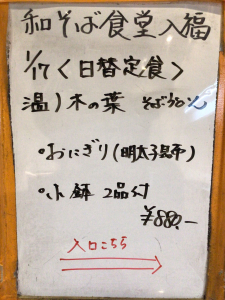 和そば食堂入福
1/17〈日替定食〉
温)木の葉 そばうどん
・おにぎり(明太子昆布)
・小鉢 2品付
¥880.-
入口こちら